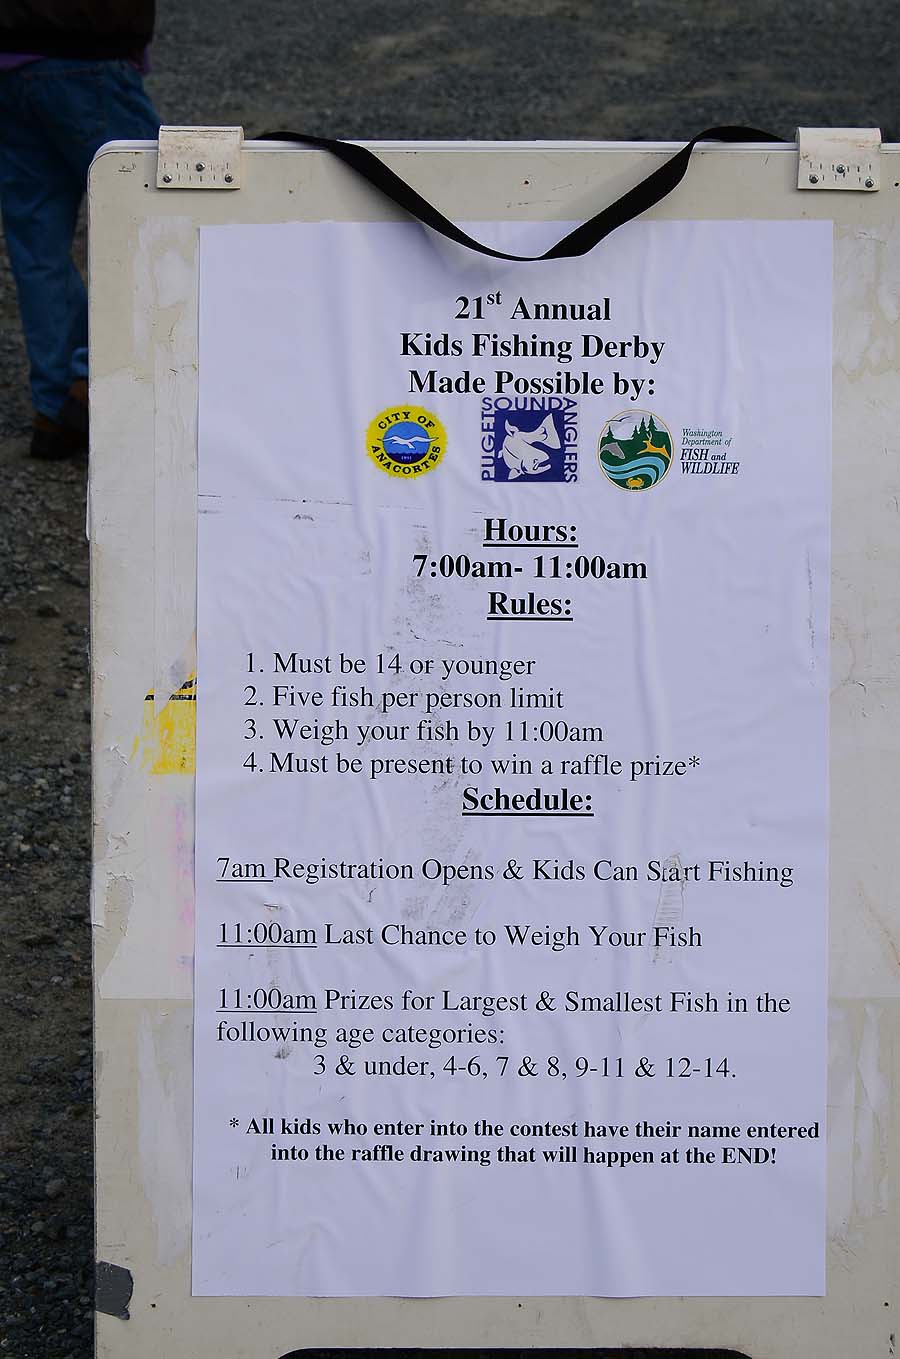 21st Annual
Kids Fishing Derby
Made Possible by:
CITY OF
ANACORTES
1891
PUGET SOUND ANGLERS
Washington
Department of
FISH and
WILDLIFE
Hours:
7:00am- 11:00am
Rules:
1. Must be 14 or younger
2. Five fish per person limit
3. Weigh your fish by 11:00am
4. Must be present to win a raffle prize*
Schedule:
7am Registration Opens & Kids Can Start Fishing
11:00am Last Chance to Weigh Your Fish
11:00am Prizes for Largest & Smallest Fish in the
following age categories:
3 & under, 4-6, 7 & 8, 9-11 & 12-14.
* All kids who enter into the contest have their name entered
into the raffle drawing that will happen at the END!